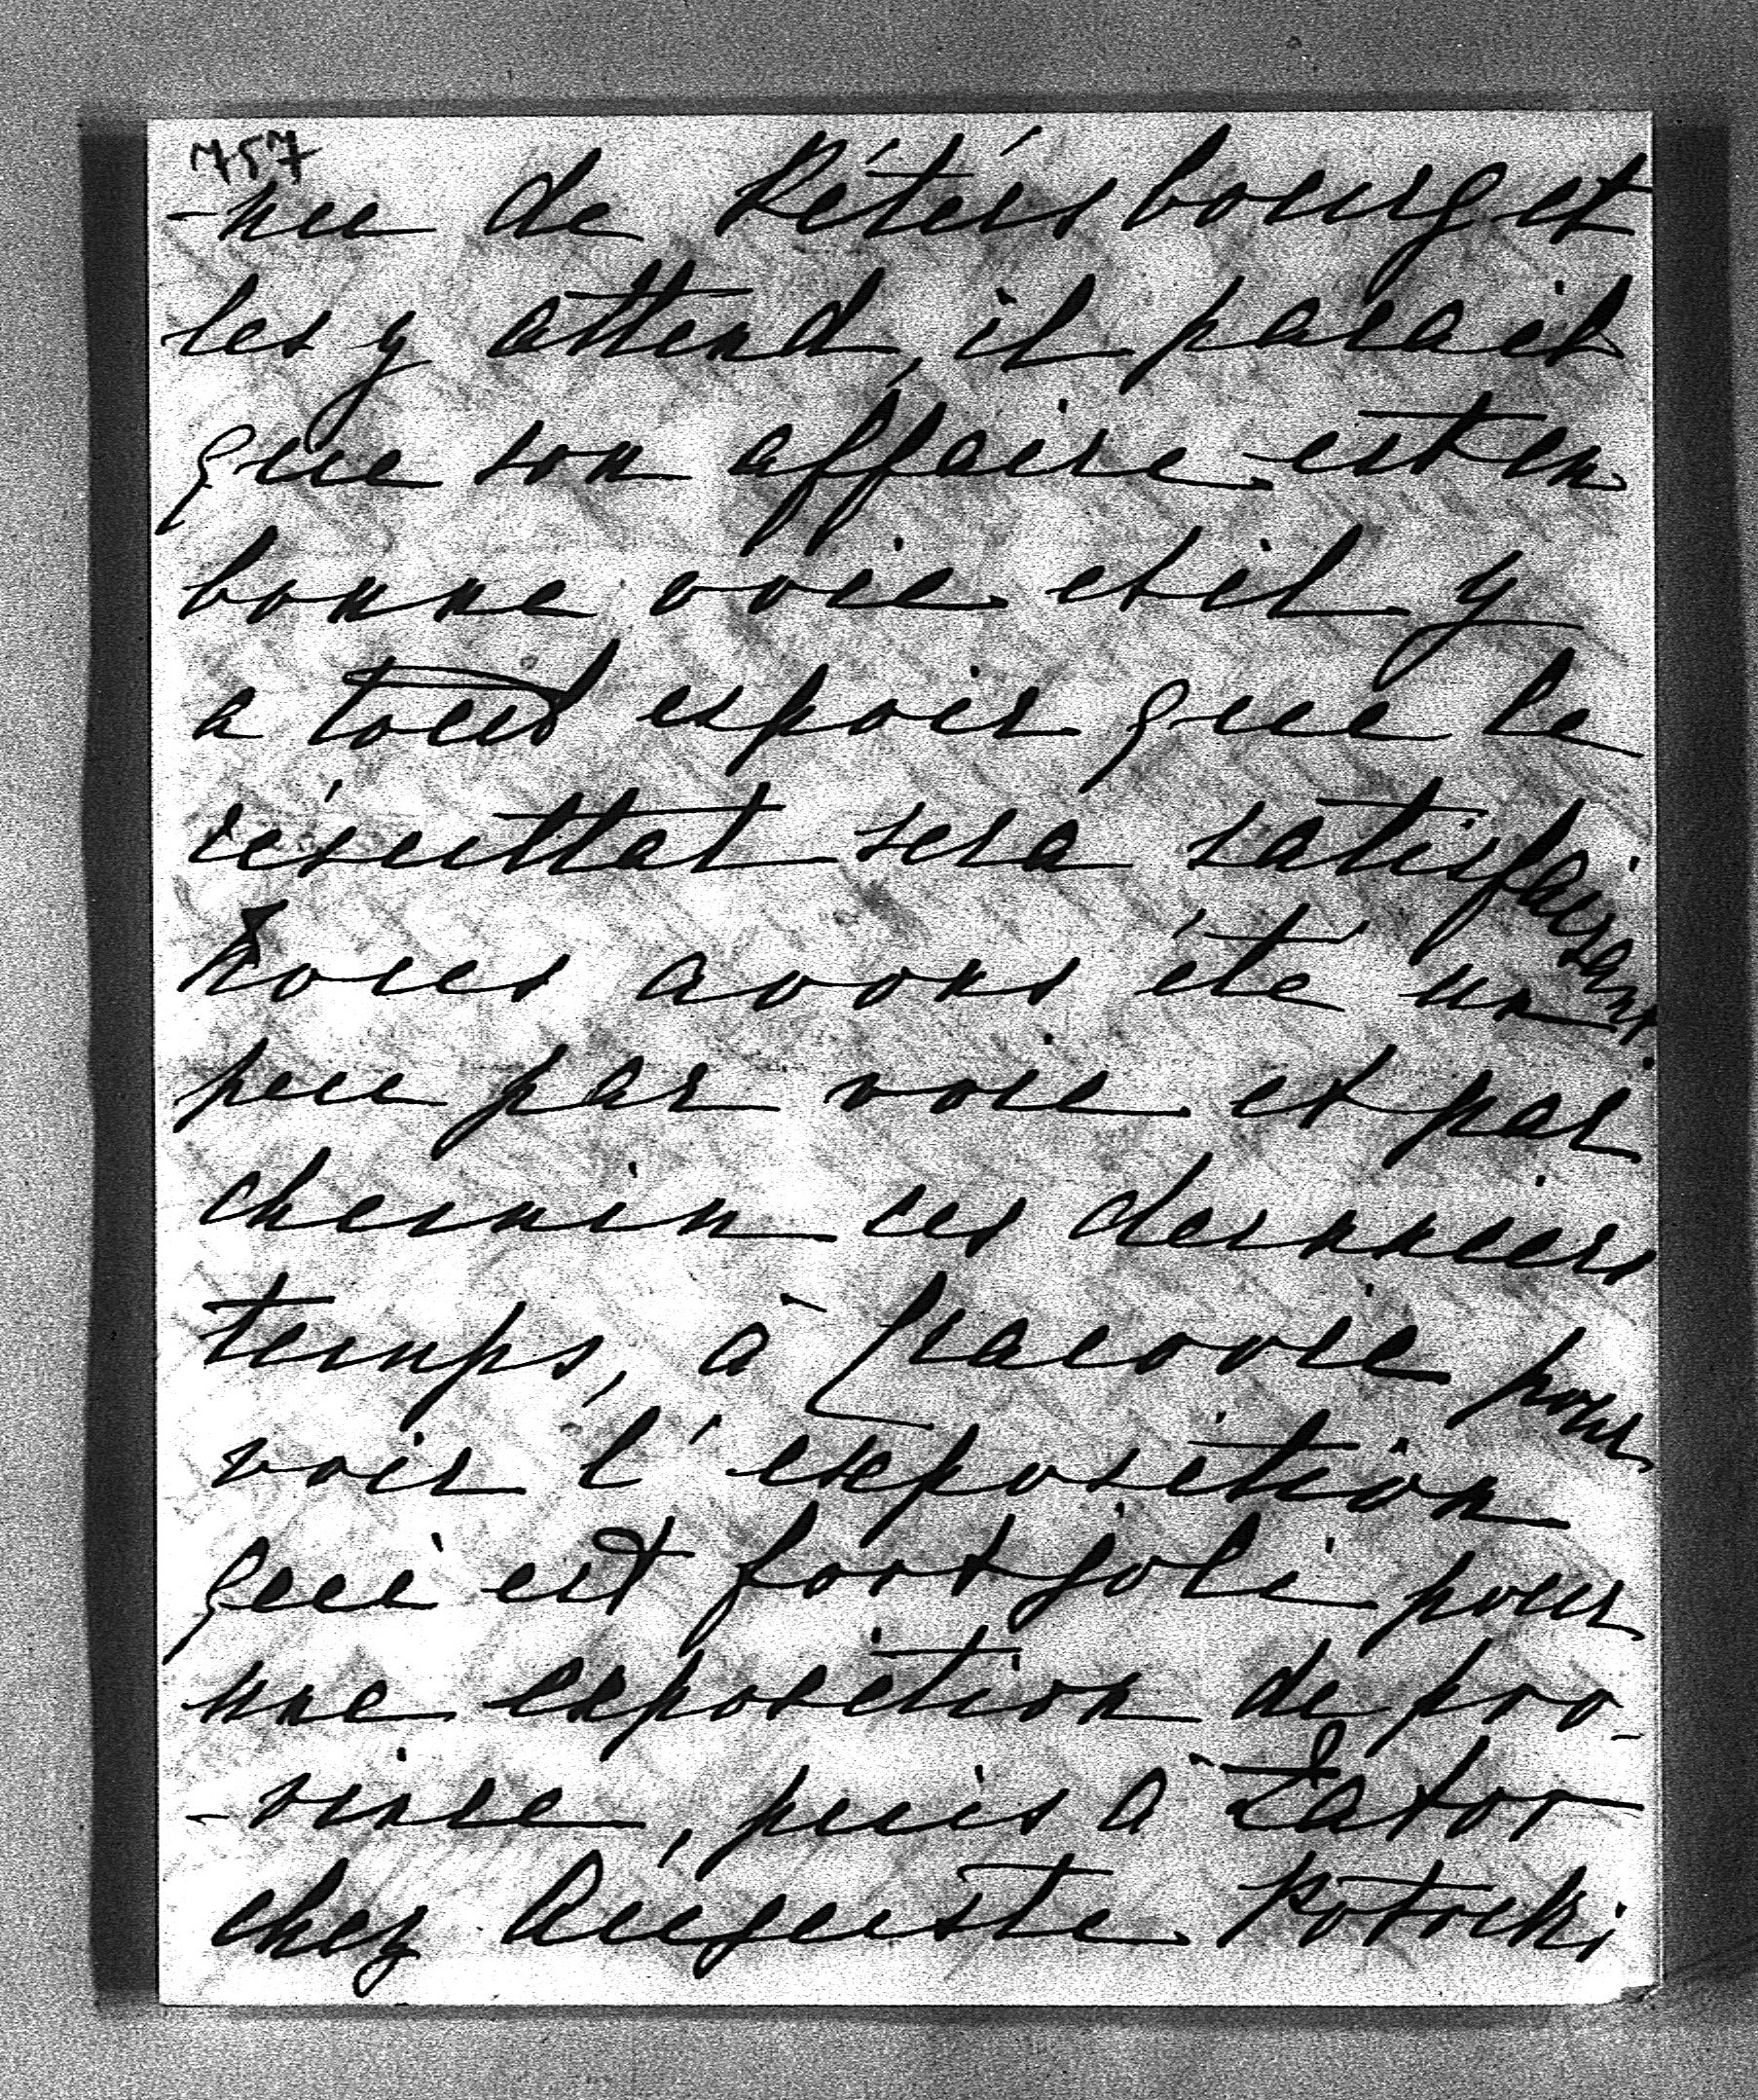 757
-nue de Pétérsbourg et
les y attend, il parait
que son affaire est en
bonne voie et il y
a tout espoir que le
résultat sera satisfaisant.
Nous avons été un
peu par voie et par
chemin ces derniers
temps, à Cracovie pour
voir l'exposition
qui est fort joli pour
une exposition de pro-
-vince, puis à Zator
chez Auguste Potocki